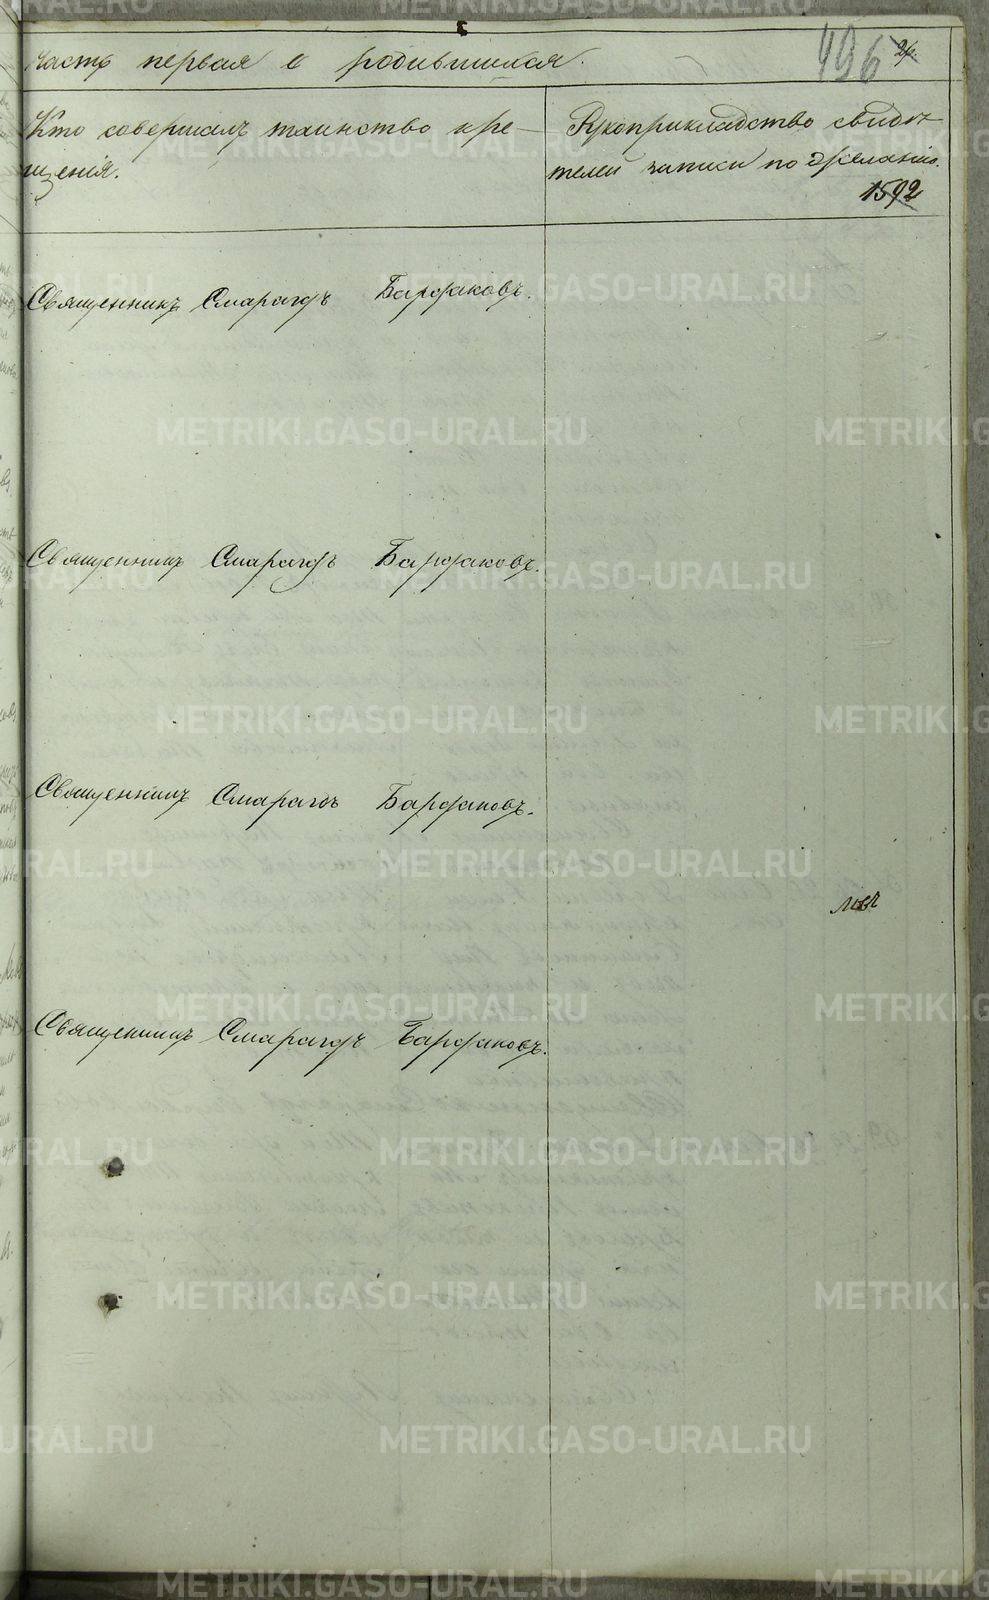 часть первая о родившихся.
496 24
Кто совершалъ таинство кре-
щенія.
Рукоприкладство свидѣ-
телей записи по желанію.
1592
Священникъ Смарагдъ Бардаковъ.
Священникъ Смарагдъ Бардаковъ.
Священникъ Смарагдъ Бардаковъ.
Священникъ Смарагдъ Бардаковъ.
METRIKI.GASO-URAL.RU